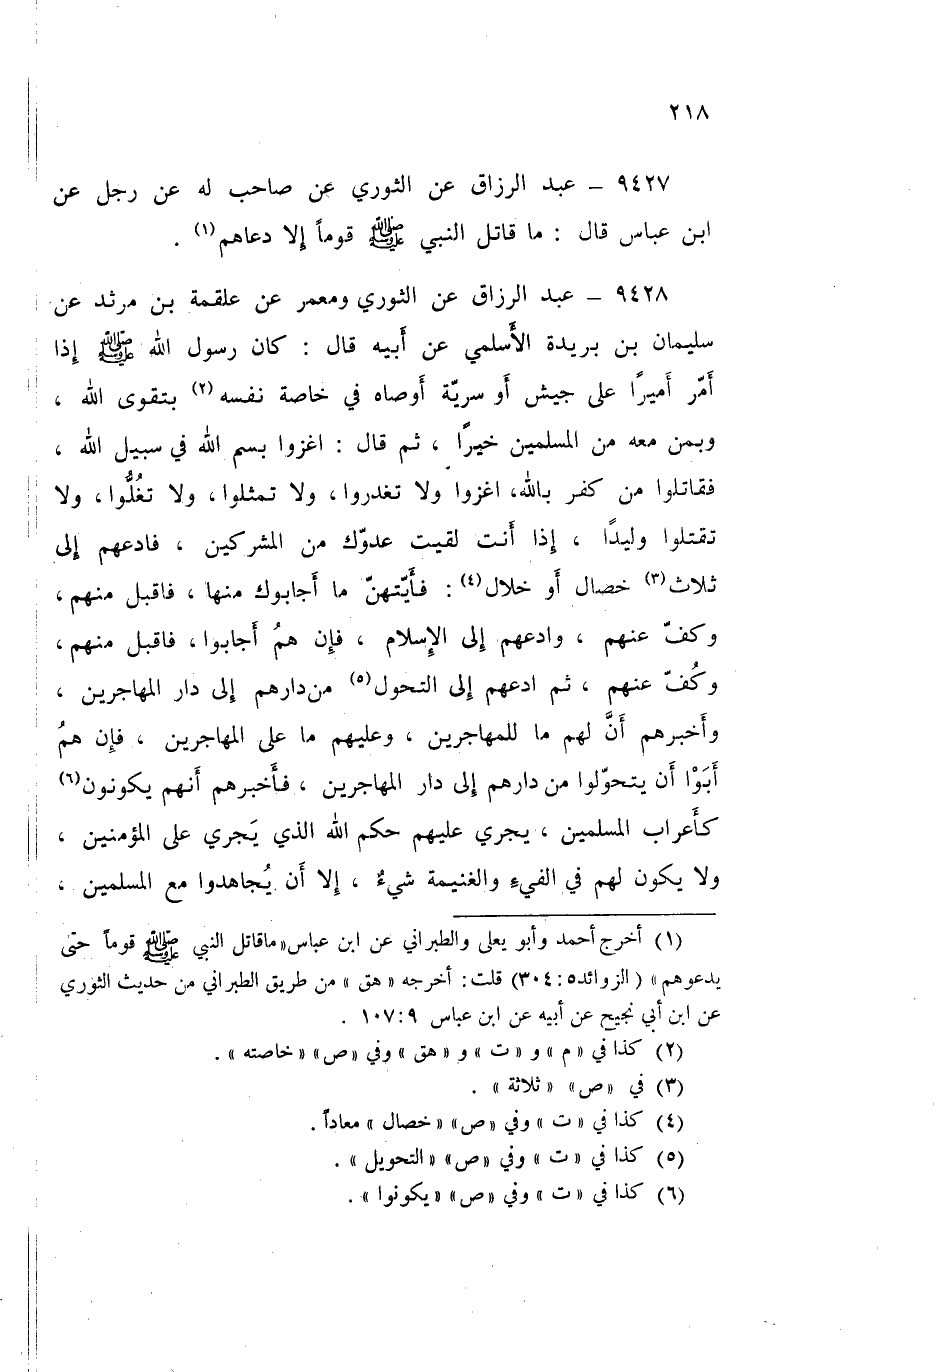 ٢١٨
٩٤٢٧ ـ عبد الرزاق عن الثوري عن صاحب له عن رجل عن
ابن عباس قال : ما قاتل النبي ﷺ قوماً إلا دعاهم(١) .
٩٤٢٨ ـ عبد الرزاق عن الثوري ومعمر عن علقمة بن مرثد عن
سليمان بن بريدة الأَسلمي عن أَبيه قال : كان رسول الله ﷺ إذا
أَمّر أَميرًا على جيش أَو سريّة أَوصاه في خاصة نفسه(٢) بتقوى الله ،
وبمن معه من المسلمين خيرًا ، ثم قال : اغزوا بسم الله في سبيل الله ،
فقاتلوا من كفر بالله، اغزوا ولا تغدروا، ولا تمثلوا، ولا تغُلُّوا، ولا
تقتلوا وليدًا ، إذا أَنت لقيت عدوّك من المشركين ، فادعهم إلى
ثلاث(٣) خصال أَو خلال(٤) : فأَيّتهنّ ما أَجابوك منها ، فاقبل منهم،
وكفّ عنهم ، وادعهم إلى الإِسلام ، فإن همُ أَجابوا، فاقبل منهم،
وكُفّ عنهم ، ثم ادعهم إلى التحول(٥) من دارهم إلى دار المهاجرين ،
وأَخبرهم أَنَّ لهم ما للمهاجرين ، وعليهم ما على المهاجرين ، فإن همُ
أَبَوْا أَن يتحوّلوا من دارهم إلى دار المهاجرين ، فأَخبرهم أَنهم يكونون(٦)
كأَعراب المسلمين ، يجري عليهم حكم الله الذي يَجري على المؤمنين ،
ولا يكون لهم في الفيءِ والغنيمة شيءٌ ، إلا أَن يُجاهدوا مع المسلمين ،
(١) أخرج أحمد وأبو يعلى والطبراني عن ابن عباس«ماقاتل النبي ﷺ قوماً حتى
يدعوهم» (الزوائد٥: ٣٠٤) قلت: أخرجه «هق» من طريق الطبراني من حديث الثوري
عن ابن أبي نجيح عن أبيه عن ابن عباس ٩: ١٠٧ .
(٢) كذا في «م» و «ت» و «هق» وفي «ص» «خاصته» .
(٣) في «ص» «ثلاثة» .
(٤) كذا في «ت» وفي «ص» «خصال» معاداً .
(٥) كذا في «ت» وفي «ص» «التحويل» .
(٦) كذا في «ت» وفي «ص» «يكونوا» .